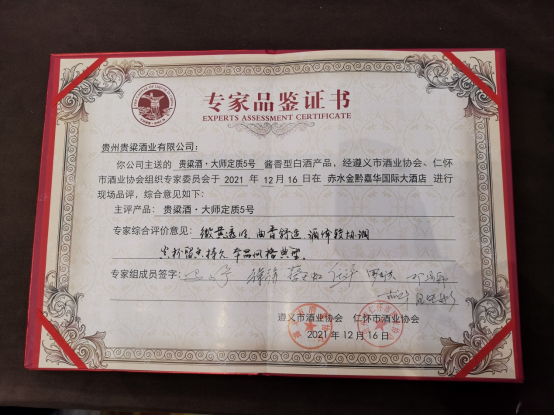 专家品鉴证书
EXPERTS ASSESSMENT CERTIFICATE
贵州贵粱酒业有限公司：
你公司主送的 贵粱酒·大师定质5号 酱香型白酒产品，经遵义市酒业协会、仁怀
市酒业协会组织专家委员会于 2021 年 12 月 16 日在 赤水金黔嘉华国际大酒店 进行
现场品评，综合意见如下：
主评产品：贵粱酒·大师定质5号
专家综合评价意见：微黄透明，曲香舒适，酒体较协调
空杯留香持久，本品风格典型。
专家组成员签字：
遵义市酒业协会 仁怀市酒业协会
2021年12月16日